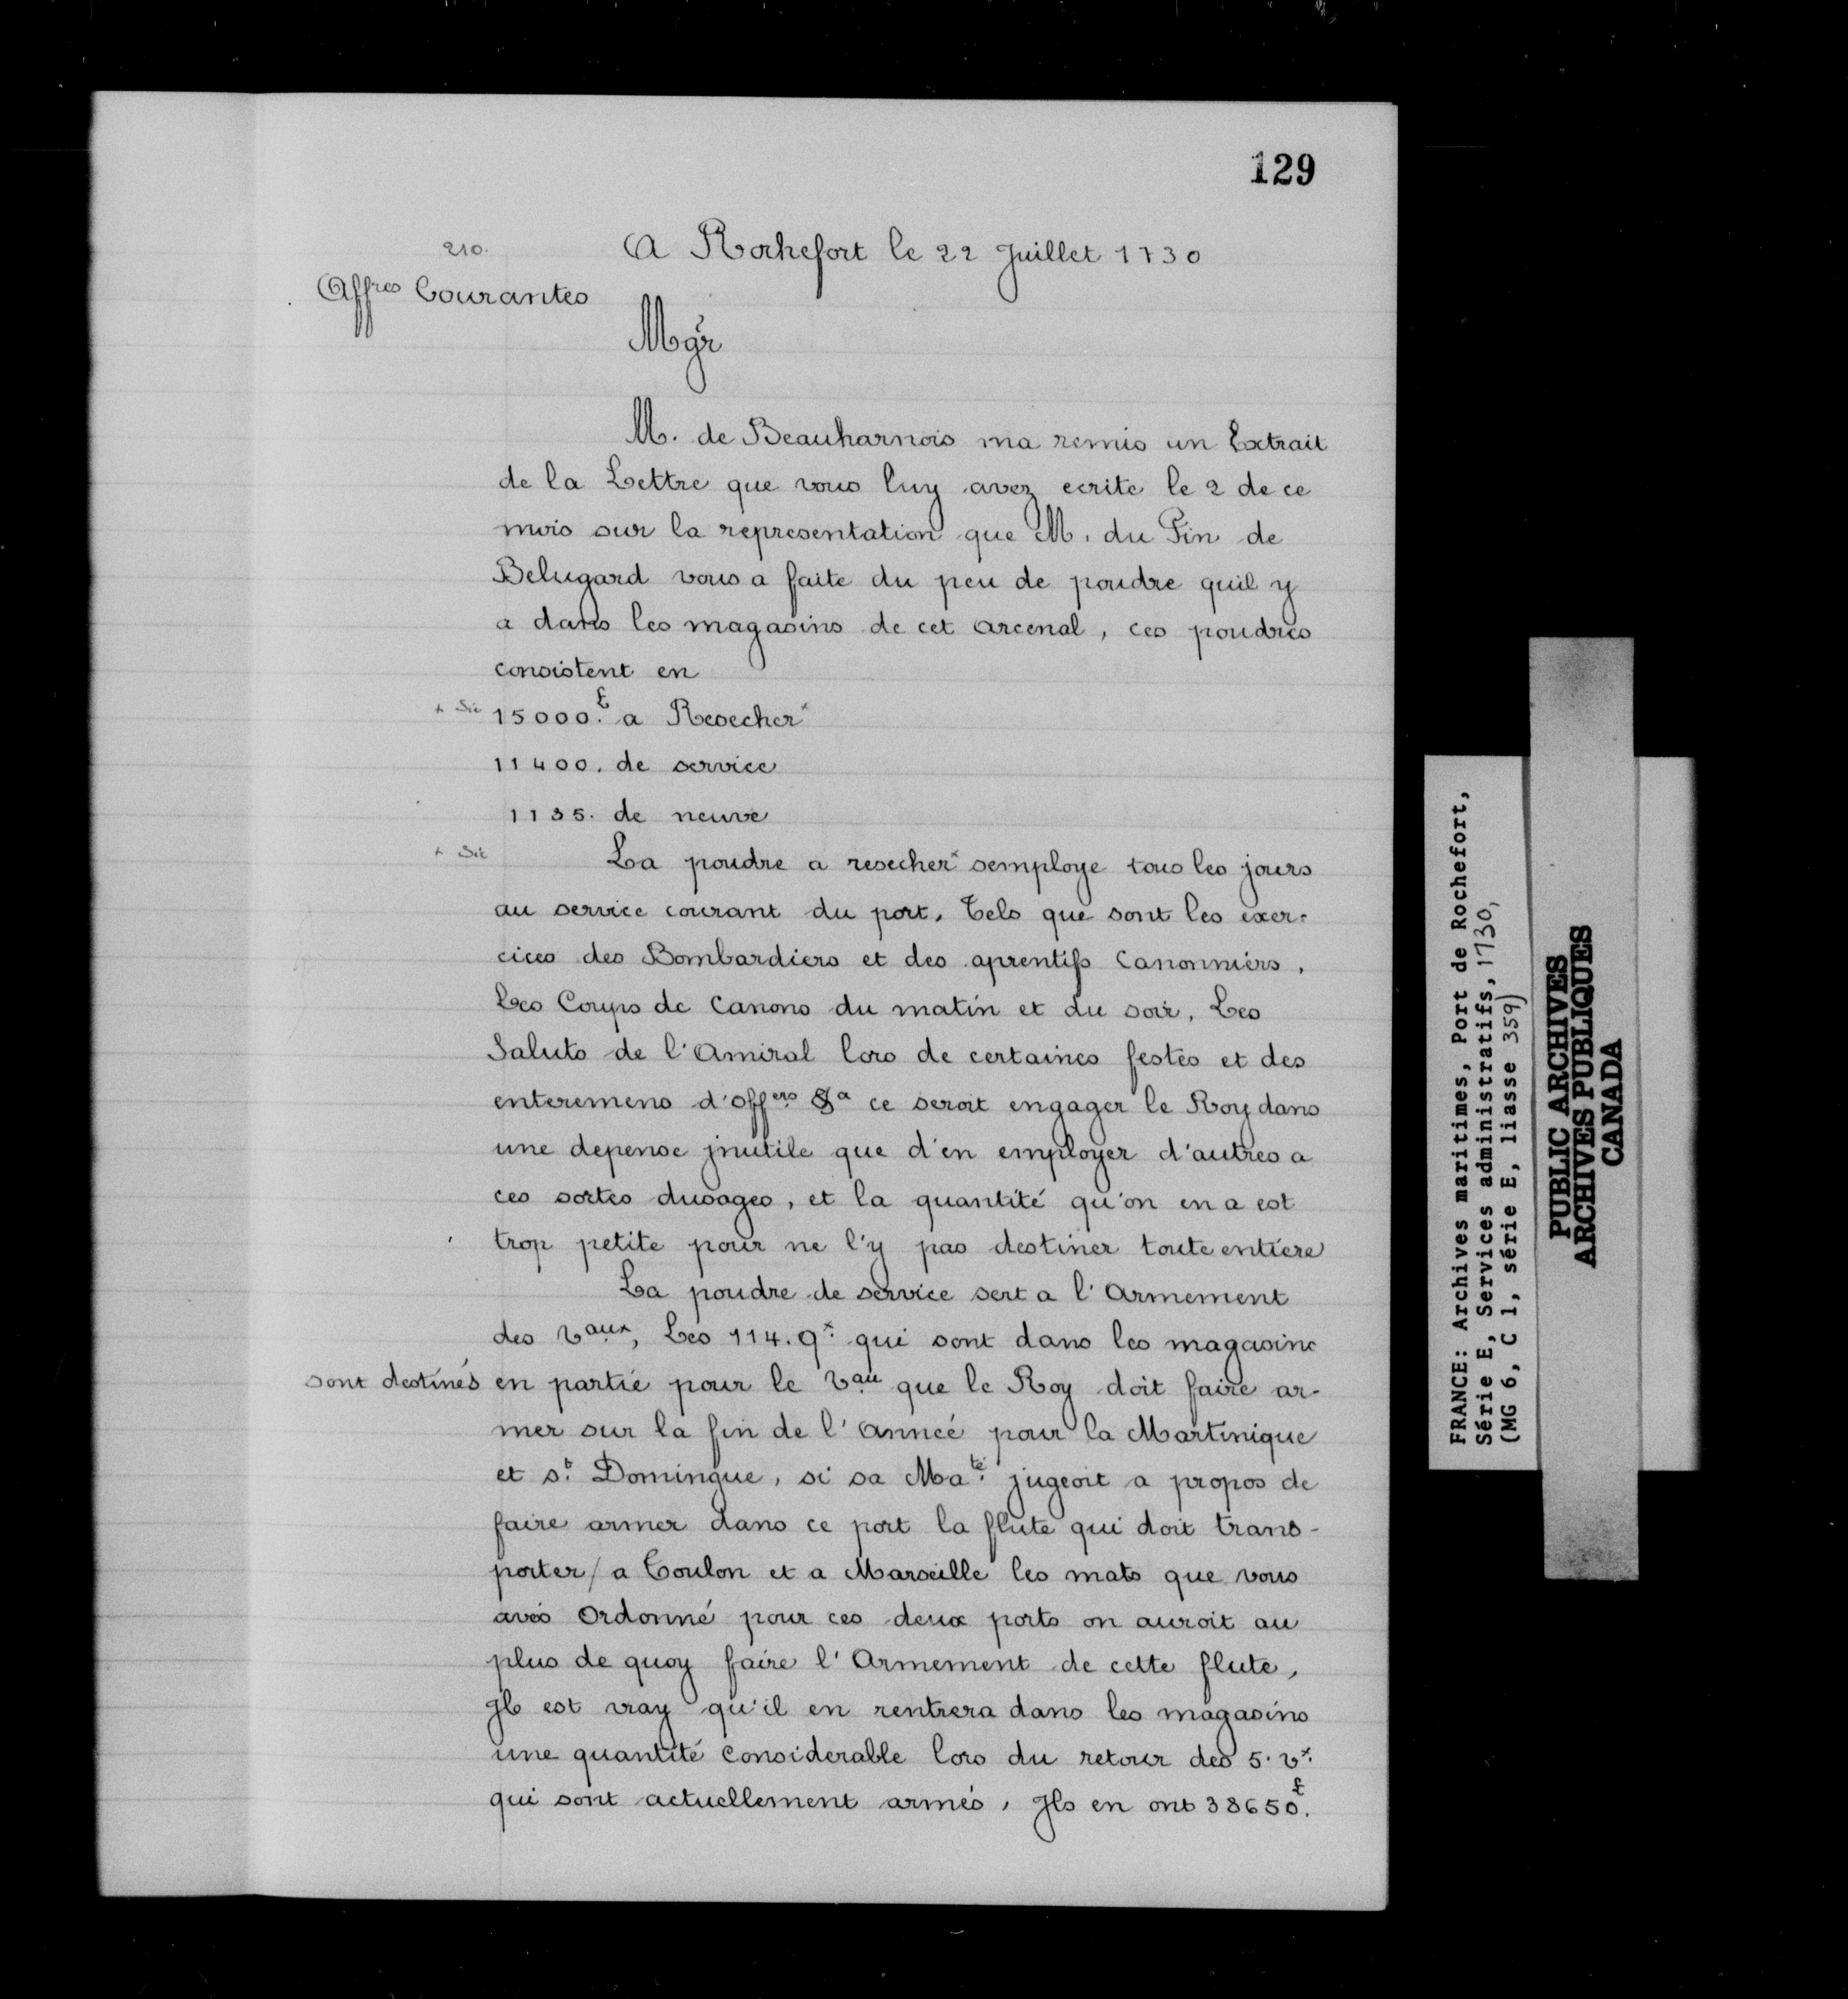 129
210.
A Rochefort le 22 Juillet 1730
Aff.res Courantes
Mgr
M. de Beauharnois ma remis un Extrait
de la Lettre que vous luy avez ecrite le 2 de ce
mois sur la representation que M. du Pin de
Belugard vous a faite du peu de poudre quil y
a dans les magasins de cet arcenal, ces poudres
consistent en
+ Sic 15000.£ a Resecher x
11400. de service
1135. de neuve
+ Sic La poudre a resecher x semploye tous les jours
au service courant du port. Tels que sont les exer-
cices des Bombardiers et des aprentifs Canonniers,
Les Coups de Canons du matin et du soir, Les
Saluts de l'Amiral lors de certaines festes et des
enteremens d'off.ers &a ce seroit engager le Roy dans
une depense jnutile que d'en employer d'autres a
ces sortes dusages, et la quantité qu'on en a est
trop petite pour ne l'y pas destiner toute entiere
La poudre de service sert a l'Armement
des V.aux, Les 114. q.x qui sont dans les magasins
sont destinés en partie pour le V.au que le Roy doit faire ar-
mer sur la fin de l'Année pour la Martinique
et S.t Domingue, si sa Ma.té jugeoit a propos de
faire armer dans ce port la flute qui doit trans-
porter / a Toulon et a Marseille les mats que vous
avés Ordonné pour ces deux ports on auroit au
plus de quoy faire l'Armement de cette flute,
Jl est vray qu'il en rentrera dans les magasins
une quantité considerable lors du retour des 5. V.x
qui sont actuellement armés, Jls en ont 38650.£
FRANCE: Archives maritimes, Port de Rochefort,
Série E, Services administratifs, 1730,
(MG 6, C 1, série E, liasse 359)
PUBLIC ARCHIVES
ARCHIVES PUBLIQUES
CANADA